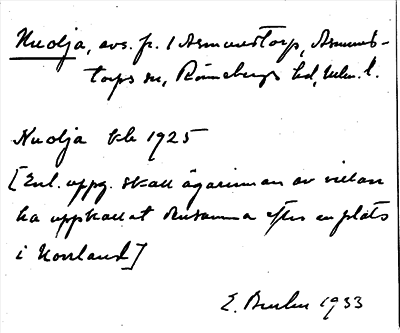 Nudja, avs. fr. 1 Asmundtorp, Asmunds-
torps sn, Rönnebergs hd, Mlm. l.
Nudja kb 1925
[Enl. uppg. skall ägarinnan av villan
ha uppkallat densamma efter en plats
i Norrland]
E. 1933